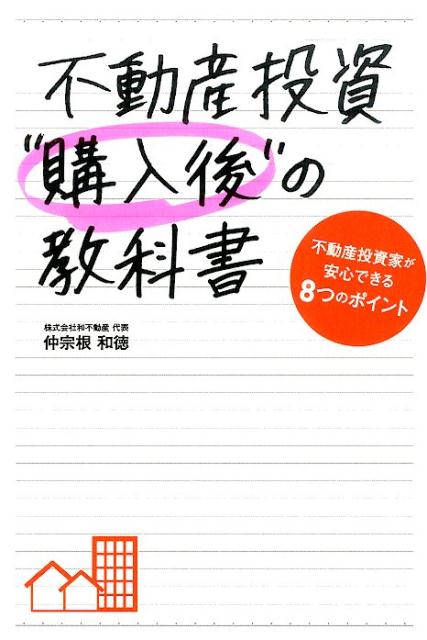 不動産投資
“購入後”の
教科書
不動産投資家が
安心できる
8つのポイント
株式会社和不動産 代表
仲宗根 和徳